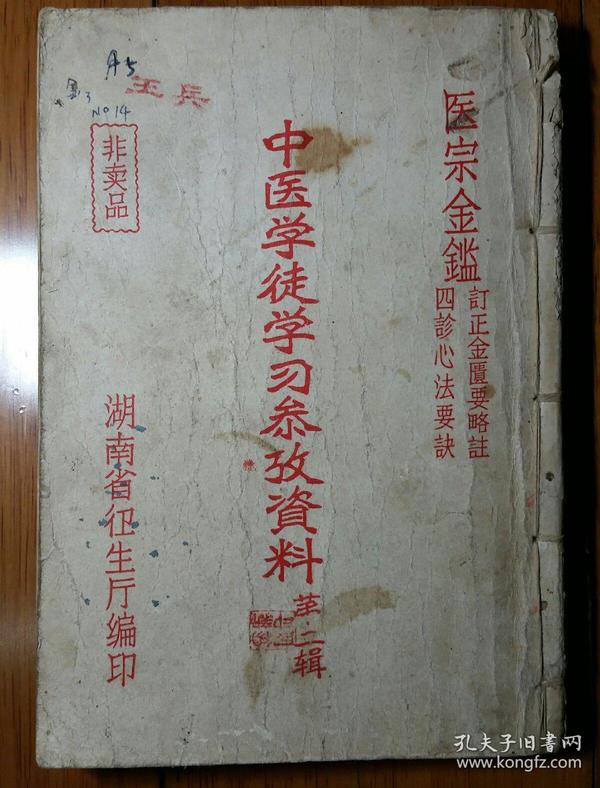 医宗金鑑
訂正金匱要略註
四診心法要訣
中医学徒学习参攷資料
第二辑
A5
No 14
王兵
非卖品
湖南省卫生厅编印
孔夫子旧书网
www.kongfz.com